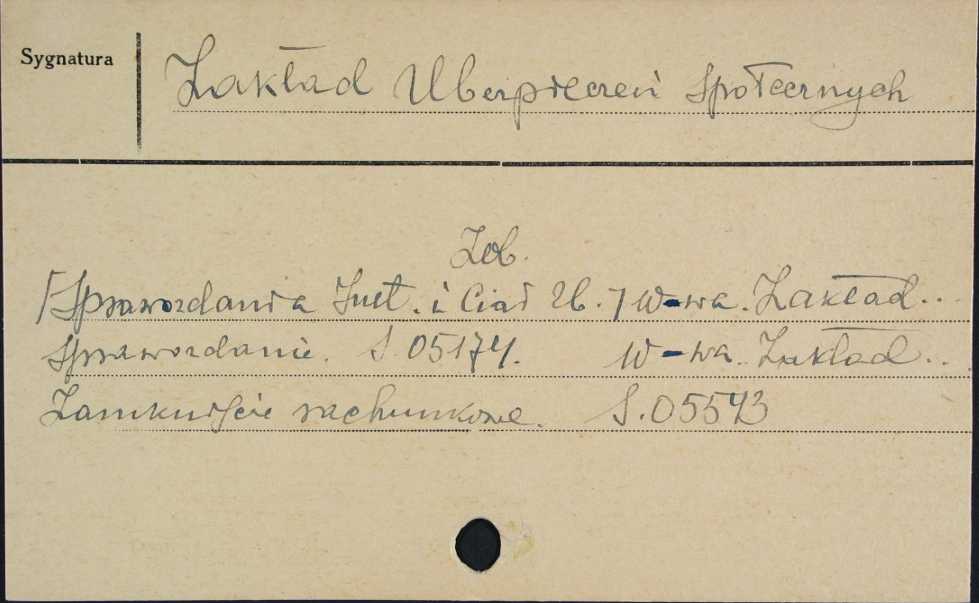 Sygnatura
Zakład Ubezpieczeń Społecznych
Zob.
/Sprawozdania Inst. i Ciał Zb./ W-wa. Zakład..
Sprawozdanie. S.05174. W-wa. Zakład..
Zamknięcie rachunkowe. S.05543